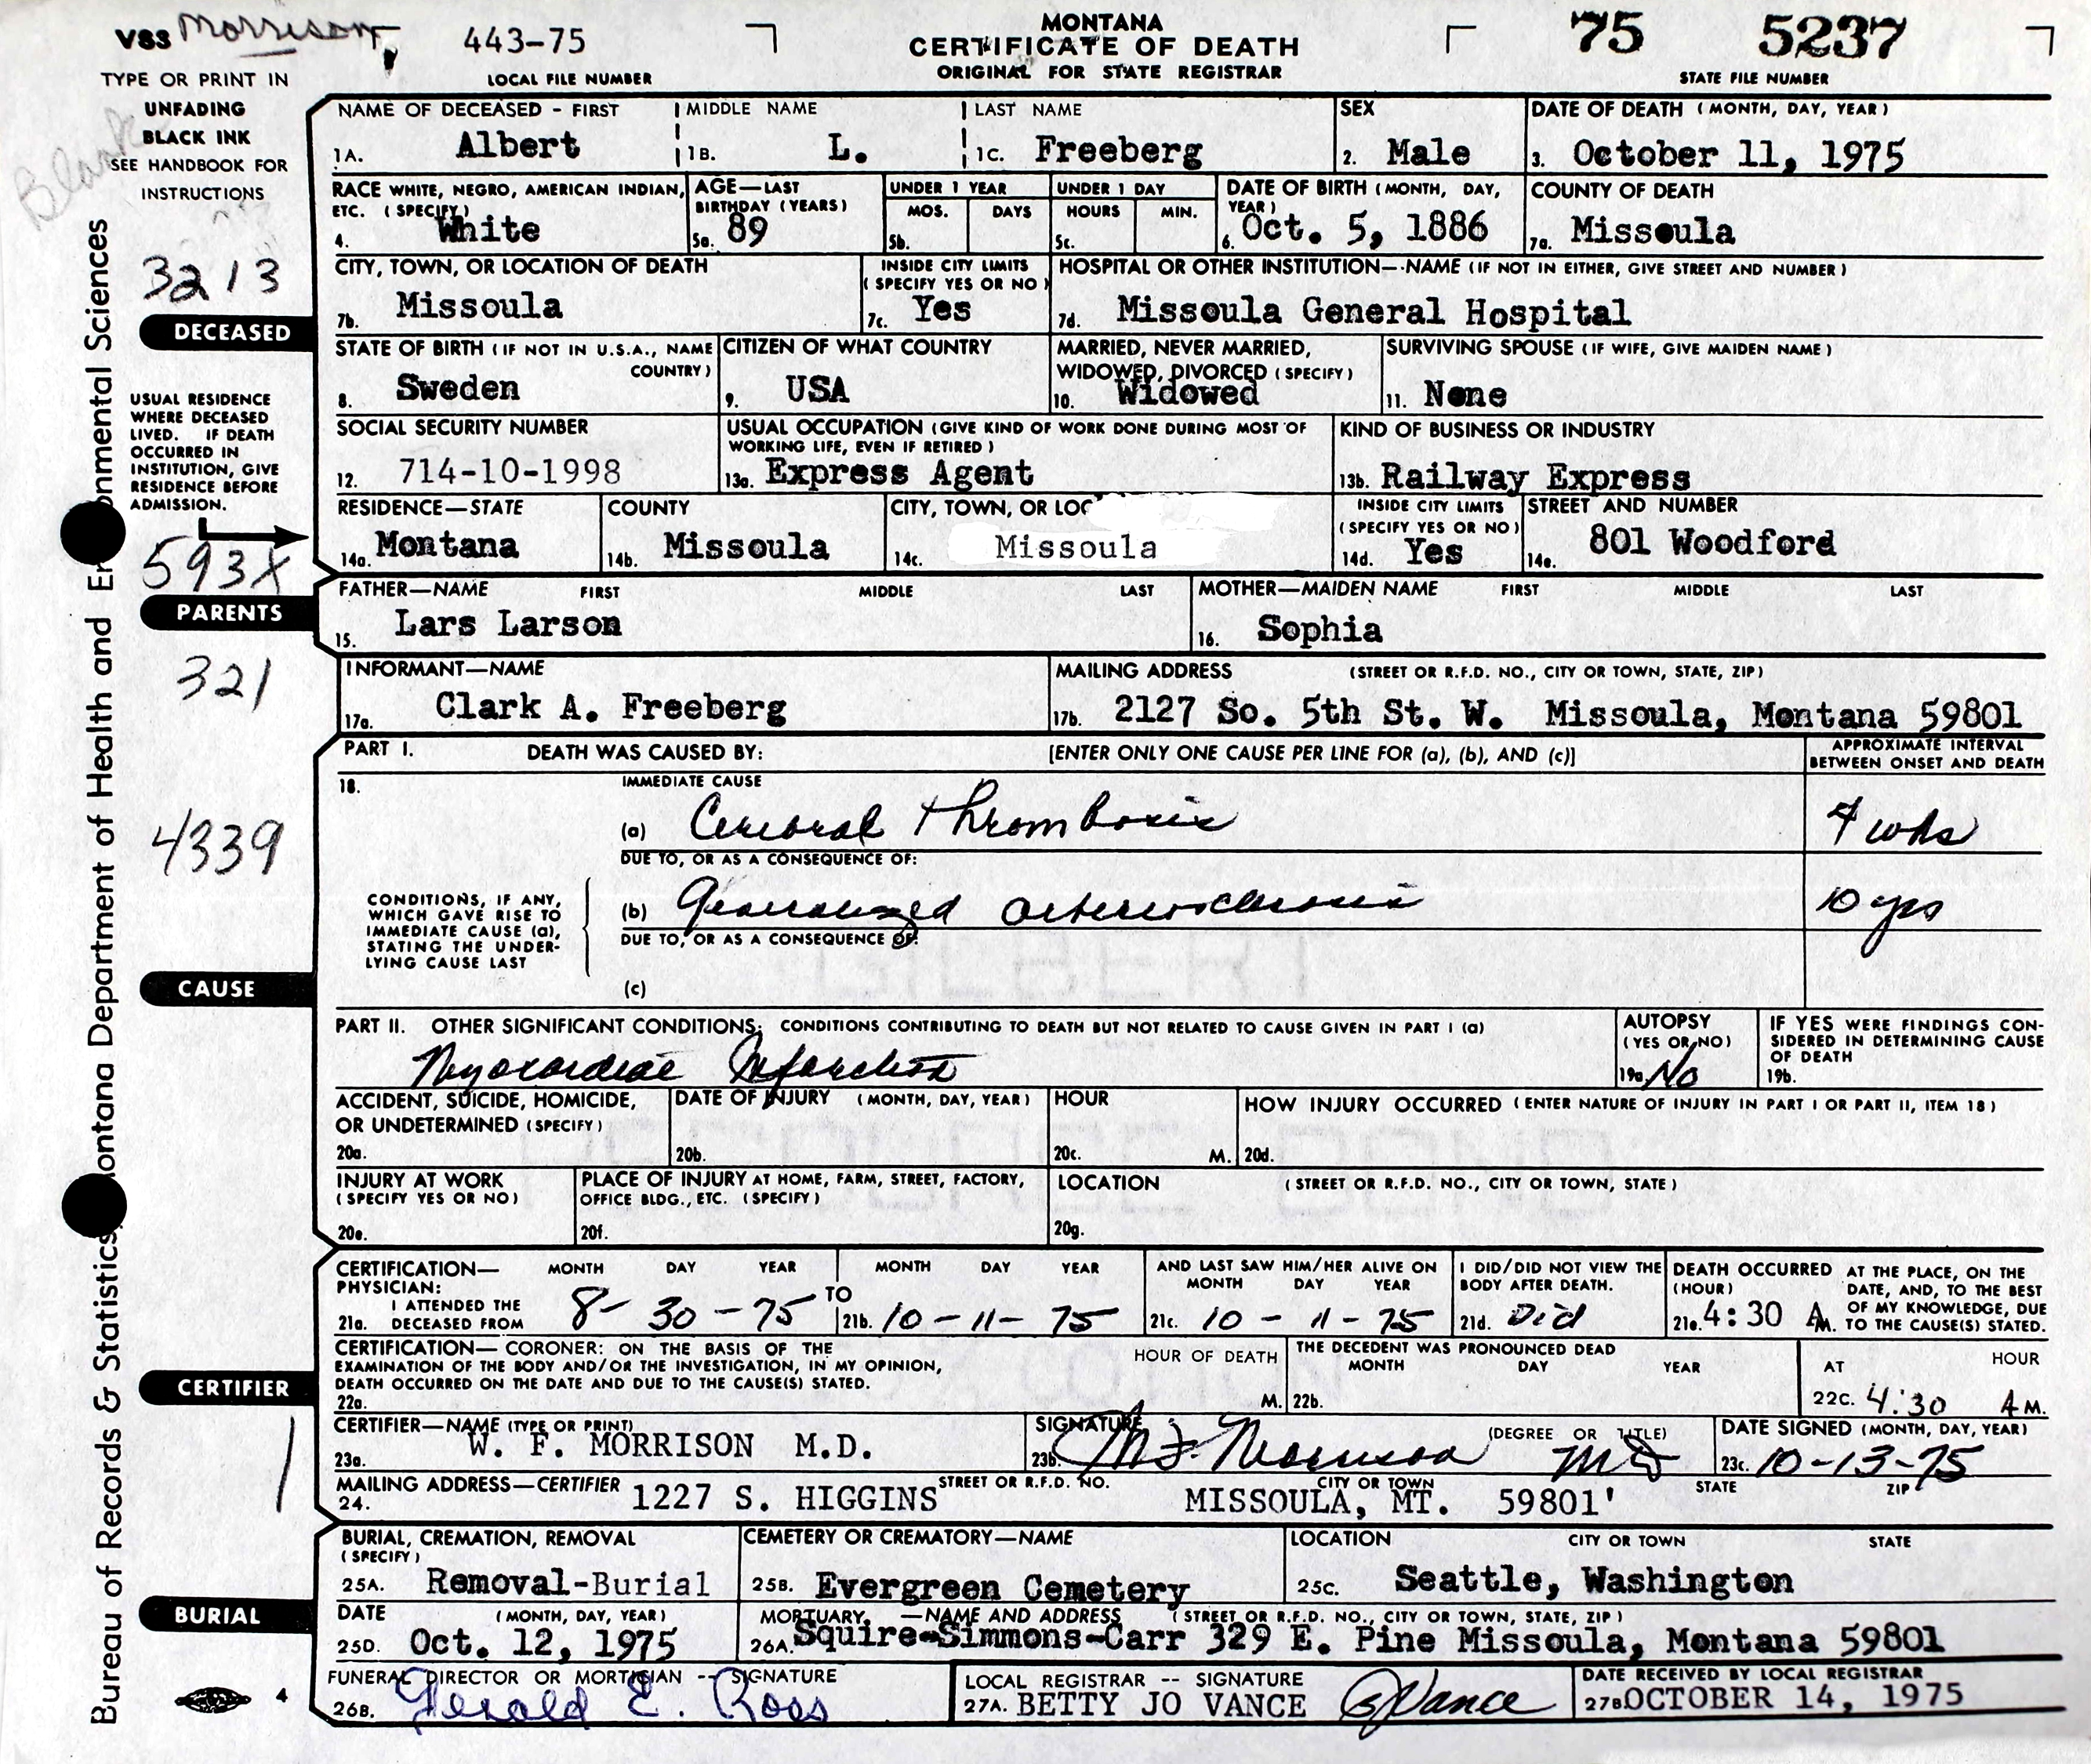 VS3 Morrison, 443-75
LOCAL FILE NUMBER
MONTANA
CERTIFICATE OF DEATH
ORIGINAL FOR STATE REGISTRAR
75 5237
STATE FILE NUMBER
TYPE OR PRINT IN
UNFADING
BLACK INK
SEE HANDBOOK FOR
INSTRUCTIONS
NAME OF DECEASED - FIRST MIDDLE NAME LAST NAME SEX DATE OF DEATH (MONTH, DAY, YEAR)
1A. Albert 1B. L. 1C. Freeberg 2. Male 3. October 11, 1975
RACE WHITE, NEGRO, AMERICAN INDIAN, ETC. (SPECIFY) AGE—LAST BIRTHDAY (YEARS) UNDER 1 YEAR UNDER 1 DAY DATE OF BIRTH (MONTH, DAY, YEAR) COUNTY OF DEATH
MOS. DAYS HOURS MIN.
4. White 5a. 89 5b. 5c. 6. Oct. 5, 1886 7a. Missoula
3213
DECEASED
CITY, TOWN, OR LOCATION OF DEATH INSIDE CITY LIMITS (SPECIFY YES OR NO) HOSPITAL OR OTHER INSTITUTION—NAME (IF NOT IN EITHER, GIVE STREET AND NUMBER)
7b. Missoula 7c. Yes 7d. Missoula General Hospital
STATE OF BIRTH (IF NOT IN U.S.A., NAME COUNTRY) CITIZEN OF WHAT COUNTRY MARRIED, NEVER MARRIED, WIDOWED, DIVORCED (SPECIFY) SURVIVING SPOUSE (IF WIFE, GIVE MAIDEN NAME)
8. Sweden 9. USA 10. Widowed 11. None
USUAL RESIDENCE
WHERE DECEASED
LIVED. IF DEATH
OCCURRED IN
INSTITUTION, GIVE
RESIDENCE BEFORE
ADMISSION.
SOCIAL SECURITY NUMBER USUAL OCCUPATION (GIVE KIND OF WORK DONE DURING MOST OF WORKING LIFE, EVEN IF RETIRED) KIND OF BUSINESS OR INDUSTRY
12. 714-10-1998 13a. Express Agent 13b. Railway Express
RESIDENCE—STATE COUNTY CITY, TOWN, OR LOC INSIDE CITY LIMITS (SPECIFY YES OR NO) STREET AND NUMBER
14a. Montana 14b. Missoula 14c. Missoula 14d. Yes 14e. 801 Woodford
593X
PARENTS
FATHER—NAME FIRST MIDDLE LAST MOTHER—MAIDEN NAME FIRST MIDDLE LAST
15. Lars Larson 16. Sophia
321
INFORMANT—NAME MAILING ADDRESS (STREET OR R.F.D. NO., CITY OR TOWN, STATE, ZIP)
17a. Clark A. Freeberg 17b. 2127 So. 5th St. W. Missoula, Montana 59801
PART I. DEATH WAS CAUSED BY: [ENTER ONLY ONE CAUSE PER LINE FOR (a), (b), AND (c)] APPROXIMATE INTERVAL BETWEEN ONSET AND DEATH
18. IMMEDIATE CAUSE
(a) Cerebral Thrombosis 4 wks
4339
DUE TO, OR AS A CONSEQUENCE OF:
CONDITIONS, IF ANY,
WHICH GAVE RISE TO
IMMEDIATE CAUSE (a),
STATING THE UNDER-
LYING CAUSE LAST
(b) Generalized arteriosclerosis 10 yrs
DUE TO, OR AS A CONSEQUENCE OF:
CAUSE
(c)
PART II. OTHER SIGNIFICANT CONDITIONS: CONDITIONS CONTRIBUTING TO DEATH BUT NOT RELATED TO CAUSE GIVEN IN PART I (a) AUTOPSY (YES OR NO) IF YES WERE FINDINGS CONSIDERED IN DETERMINING CAUSE OF DEATH
Myocardial Infarction 19a. No 19b.
ACCIDENT, SUICIDE, HOMICIDE, OR UNDETERMINED (SPECIFY) DATE OF INJURY (MONTH, DAY, YEAR) HOUR HOW INJURY OCCURRED (ENTER NATURE OF INJURY IN PART I OR PART II, ITEM 18)
20a. 20b. 20c. M. 20d.
INJURY AT WORK (SPECIFY YES OR NO) PLACE OF INJURY AT HOME, FARM, STREET, FACTORY, OFFICE BLDG., ETC. (SPECIFY) LOCATION (STREET OR R.F.D. NO., CITY OR TOWN, STATE)
20e. 20f. 20g.
CERTIFICATION—PHYSICIAN: MONTH DAY YEAR MONTH DAY YEAR AND LAST SAW HIM/HER ALIVE ON MONTH DAY YEAR I DID/DID NOT VIEW THE BODY AFTER DEATH. DEATH OCCURRED (HOUR) AT THE PLACE, ON THE DATE, AND, TO THE BEST OF MY KNOWLEDGE, DUE TO THE CAUSE(S) STATED.
21a. I ATTENDED THE DECEASED FROM 8-30-75 TO 21b. 10-11-75 21c. 10-11-75 21d. Did 21e. 4:30 A.M.
CERTIFICATION—CORONER: ON THE BASIS OF THE EXAMINATION OF THE BODY AND/OR THE INVESTIGATION, IN MY OPINION, DEATH OCCURRED ON THE DATE AND DUE TO THE CAUSE(S) STATED. HOUR OF DEATH THE DECEDENT WAS PRONOUNCED DEAD MONTH DAY YEAR AT HOUR
22a. M. 22b. 22C. 4:30 A M.
CERTIFIER
CERTIFIER—NAME (TYPE OR PRINT) SIGNATURE (DEGREE OR TITLE) DATE SIGNED (MONTH, DAY, YEAR)
23a. W. F. MORRISON M.D. 23b. W F Morrison MD 23c. 10-13-75
1
MAILING ADDRESS—CERTIFIER STREET OR R.F.D. NO. CITY OR TOWN STATE ZIP
24. 1227 S. HIGGINS MISSOULA, MT. 59801'
BURIAL, CREMATION, REMOVAL (SPECIFY) CEMETERY OR CREMATORY—NAME LOCATION CITY OR TOWN STATE
25A. Removal-Burial 25B. Evergreen Cemetery 25C. Seattle, Washington
BURIAL
DATE (MONTH, DAY, YEAR) MORTUARY —NAME AND ADDRESS (STREET OR R.F.D. NO., CITY OR TOWN, STATE, ZIP)
25D. Oct. 12, 1975 26A. Squire-Simmons-Carr 329 E. Pine Missoula, Montana 59801
FUNERAL DIRECTOR OR MORTICIAN -- SIGNATURE LOCAL REGISTRAR -- SIGNATURE DATE RECEIVED BY LOCAL REGISTRAR
26B. Gerald E. Ross 27A. BETTY JO VANCE BJVance 27B. OCTOBER 14, 1975
4
Bureau of Records & Statistics, Montana Department of Health and Environmental Sciences